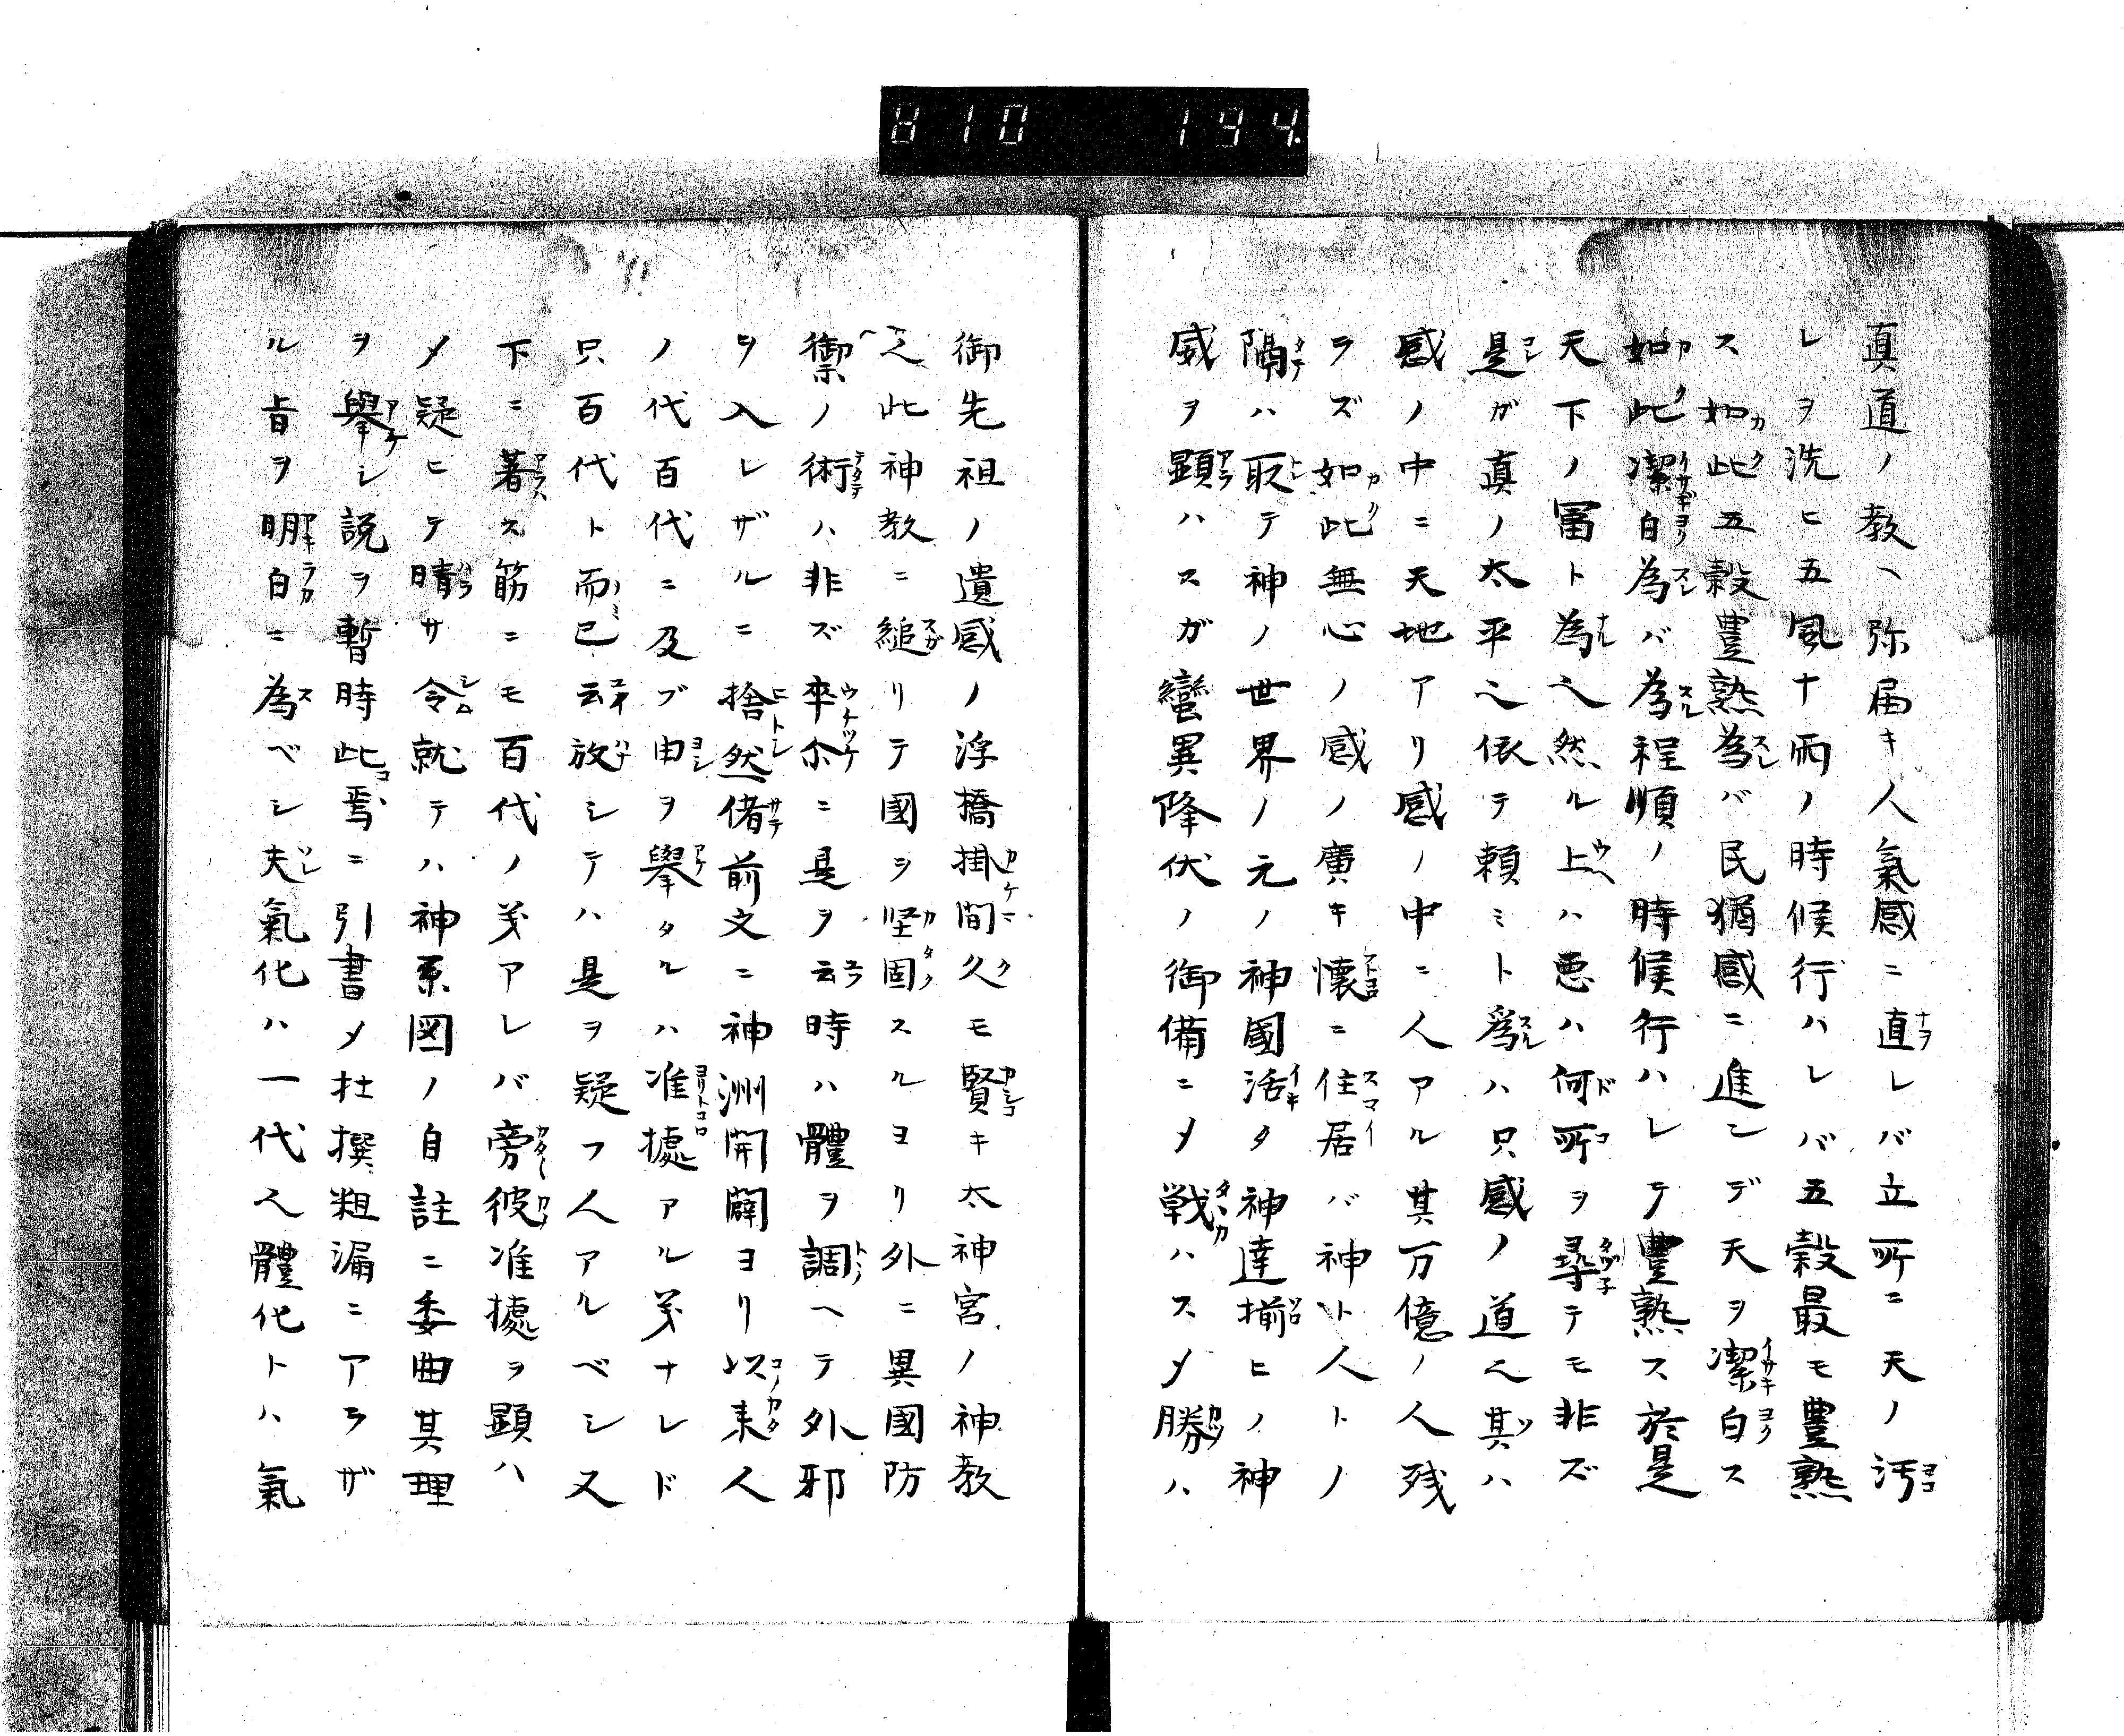 810 194
真道ノ教ヘ弥届キ人氣感ニ直レバ立所ニ天ノ汚
レヲ洗ヒ五風十雨ノ時候行ハレバ五穀最モ豊熟
ス如此五穀豊熟為バ民猶感ニ進ンデ天ヲ潔白ス
如此潔白為バ為程順ノ時候行ハレテ豊熟ス於是
天下ノ冨ト為ヘ然ル上ハ悪ハ何所ヲ尋テモ非ズ
是ガ真ノ太平ヘ依テ頼ミト爲ハ只感ノ道ヘ其ハ
感ノ中ニ天地アリ感ノ中ニ人アル其万億ノ人残
ラズ如此無心ノ感ノ廣キ懐ニ住居バ神ト人トノ
隔ハ取テ神ノ世界ノ元ノ神國活タ神達揃ヒノ神
威ヲ顕ハスガ蠻異降伏ノ御備ニメ戦ハスメ勝ハ
御先祖ノ遺感ノ浮橋掛間久モ賢キ太神宮ノ神教
ヘ此神教ニ縋リテ國ヲ堅固スルヨリ外ニ異國防
禦ノ術ハ非ズ卒尒ニ是ヲ云時ハ體ヲ調ヘテ外邪
ヲ入レザルニ捨然偖前文ニ神洲開闢ヨリ以来人
ノ代百代ニ及ブ由ヲ擧タルハ准據アル㕝ナレド
只百代ト而已云放シテハ是ヲ疑フ人アルベシ又
下ニ著ス筋ニモ百代ノ㕝アレバ旁彼准據ヲ顕ハ
メ疑ヒテ晴サ令就テハ神系図ノ自註ニ委曲其理
ヲ擧シ説ヲ暫時此焉ニ引書メ杜撰粗漏ニアラザ
ル旨ヲ明白ニ為ベシ夫氣化ハ一代ヘ體化トハ氣